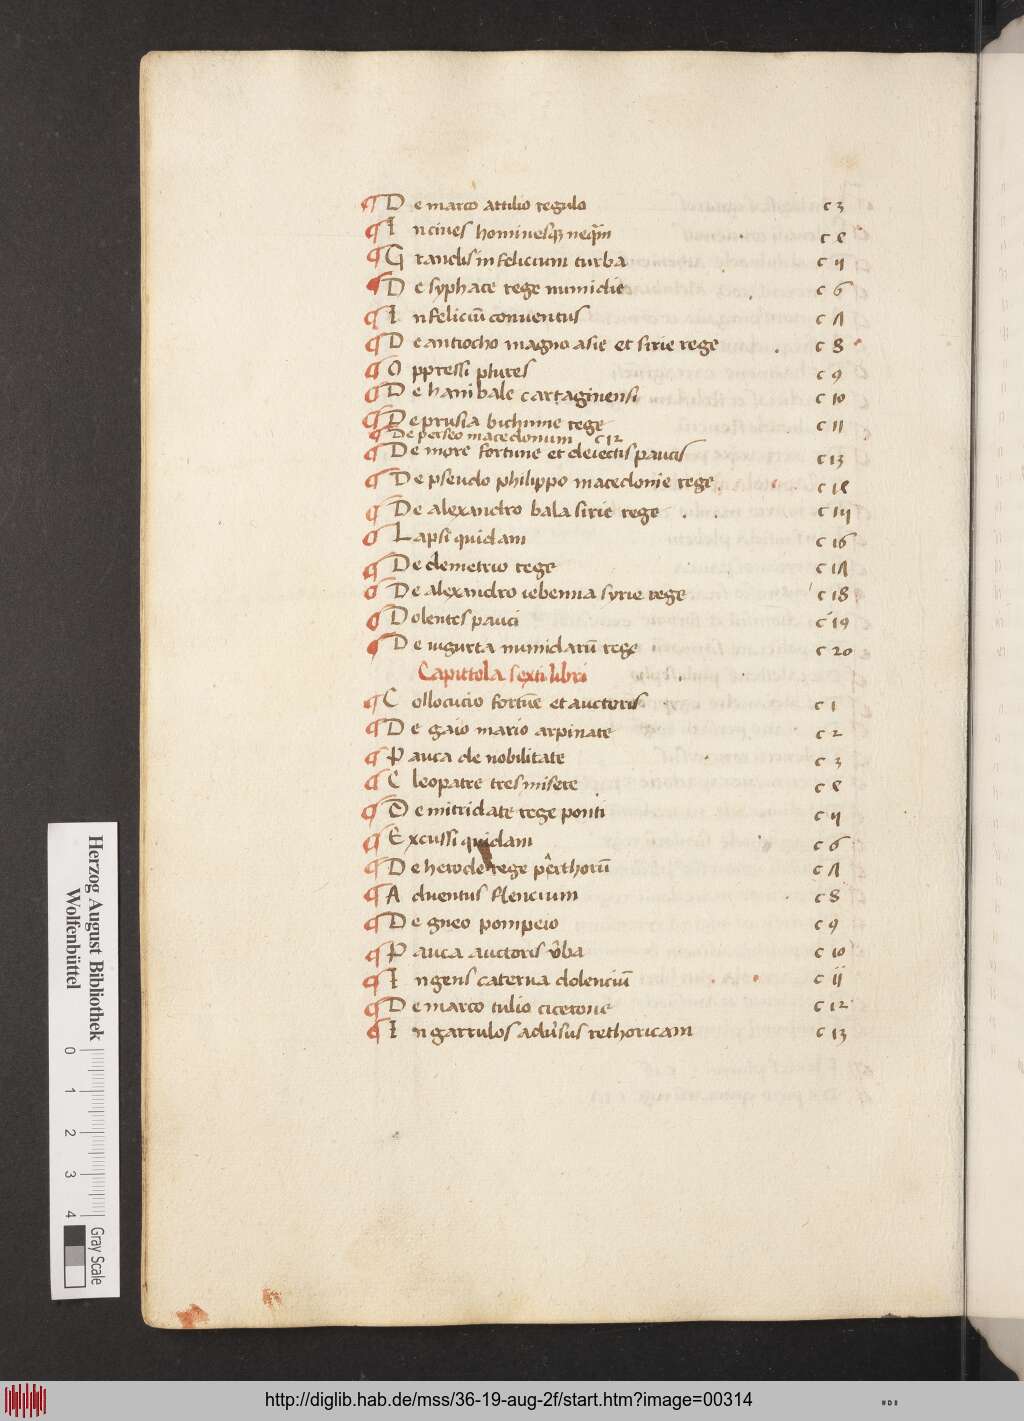 ¶ De marco attilio regulo c 3
¶ In cives hominesqꝫ neqᷓm c 4
¶ Grandis infelicium turba c 5
¶ De syphace rege numidie c 6
¶ Infeliciū conventus c 7
¶ De antiocho magno asie et sirie rege c 8
¶ Oppressi plures c 9
¶ De hanibale cartaginensi c 10
¶ De prusia bithinie rege c 11
¶ De perseo macedonum c 12
¶ De more fortune et deiectis paucis c 13
¶ De pseudo philippo macedonie rege c 14
¶ De alexandro bala sirie rege c 15
¶ Lapsi quidam c 16
¶ De demetrio rege c 17
¶ De alexandro zebenna syrie rege c 18
¶ Dolentes pauci c 19
¶ De iugurta numidarū rege c 20
Capittola sexti libri
¶ Collocucio fortūe et auctoris c 1
¶ De gaio mario arpinate c 2
¶ Pauca de nobilitate c 3
¶ Cleopatre tres misere c 4
¶ De mitridate rege ponti c 5
¶ Excussi quidam c 6
¶ De herode rege perthorū c 7
¶ Adventus flencium c 8
¶ De gneo pompeio c 9
¶ Pauca auctoris v̄ba c 10
¶ Ingens caterva dolenciū c 11
¶ De marco tulio cicerone c 12
¶ In garrulos adv̄sus rethoricam c 13
Herzog August Bibliothek
Wolfenbüttel
0 1 2 3 4
Gray Scale
http://diglib.hab.de/mss/36-19-aug-2f/start.htm?image=00314